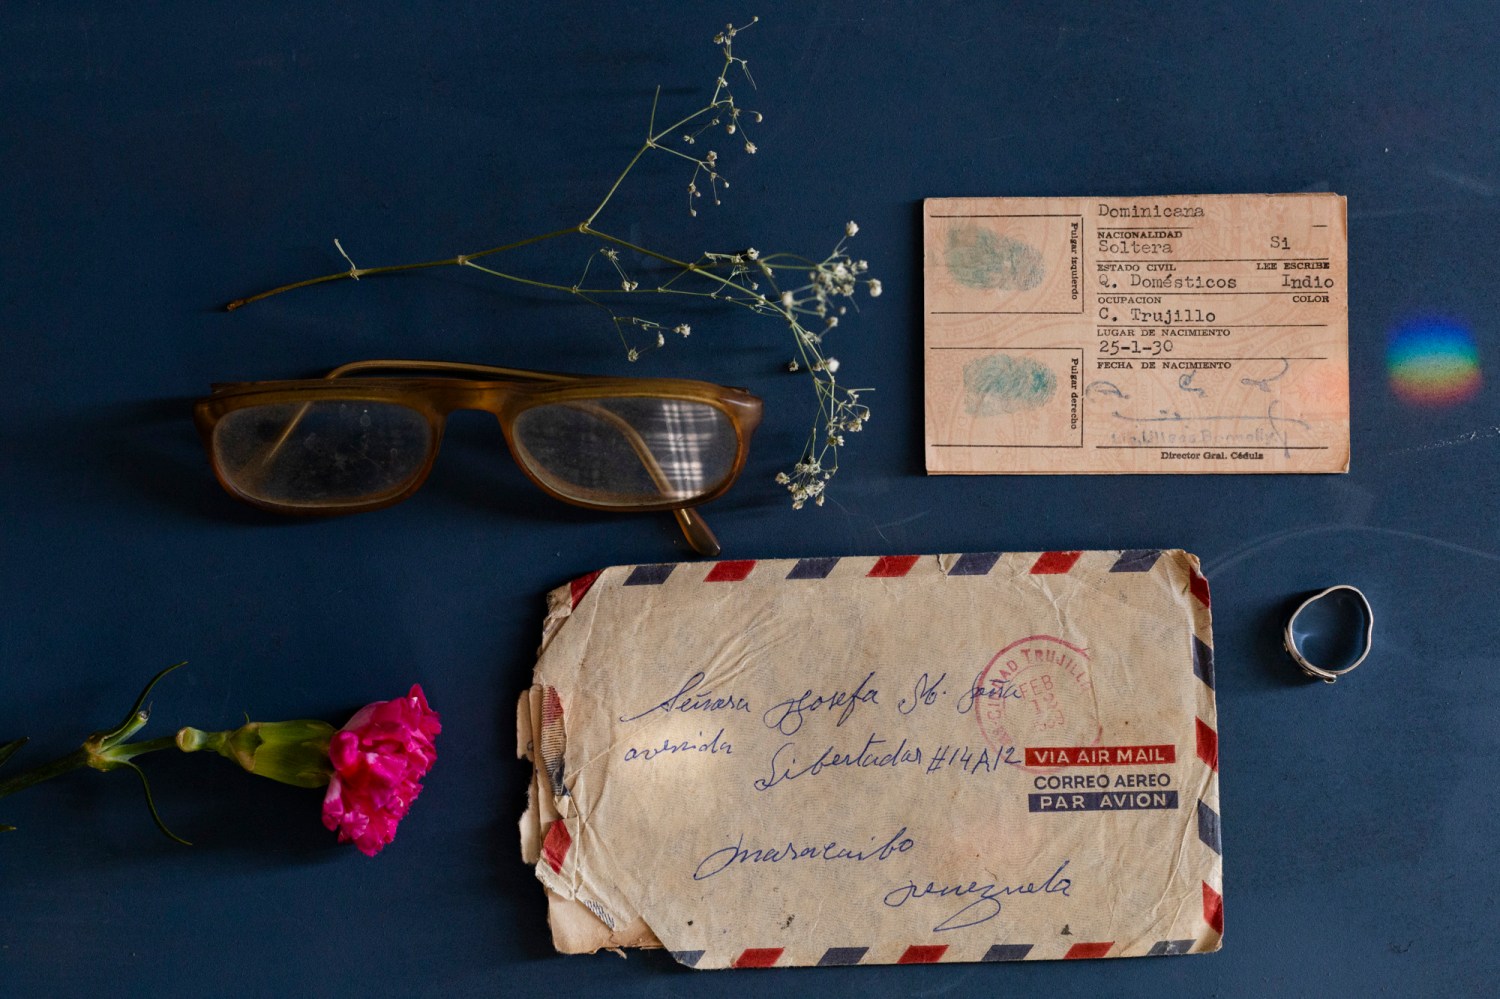 Dominicana
NACIONALIDAD
Soltera Si
ESTADO CIVIL LEE ESCRIBE
Q. Domésticos Indio
OCUPACION COLOR
C. Trujillo
LUGAR DE NACIMIENTO
25-1-30
FECHA DE NACIMIENTO
Director Gral. Cédula
Pulgar izquierdo
Pulgar derecho
CIUDAD TRUJILLO
FEB
Señora Josefa M.
avenida Libertador #14A12
Maracaibo
Venezuela
VIA AIR MAIL
CORREO AEREO
PAR AVION